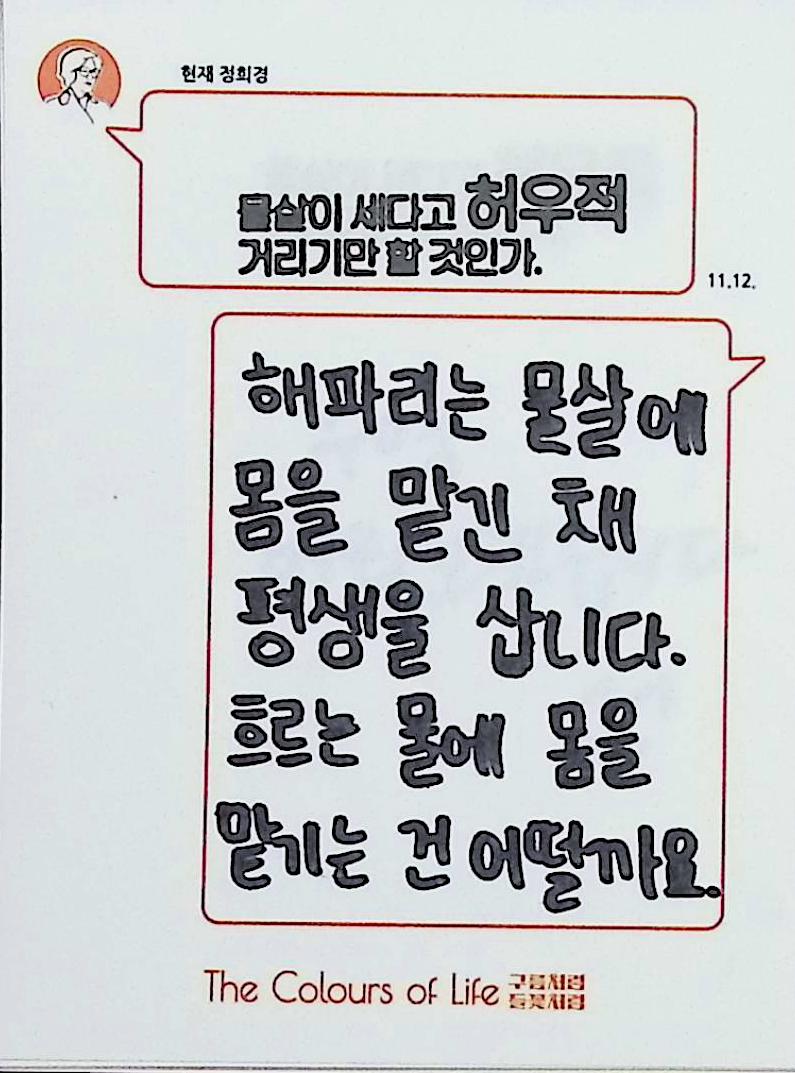 현재 정희경
물살이 세다고 허우적
거리기만 할 것인가.
11.12.
해파리는 물살에
몸을 맡긴 채
평생을 삽니다.
흐르는 물에 몸을
맡기는 건 어떨까요.
The Colours of Life 구름처럼
들꽃처럼